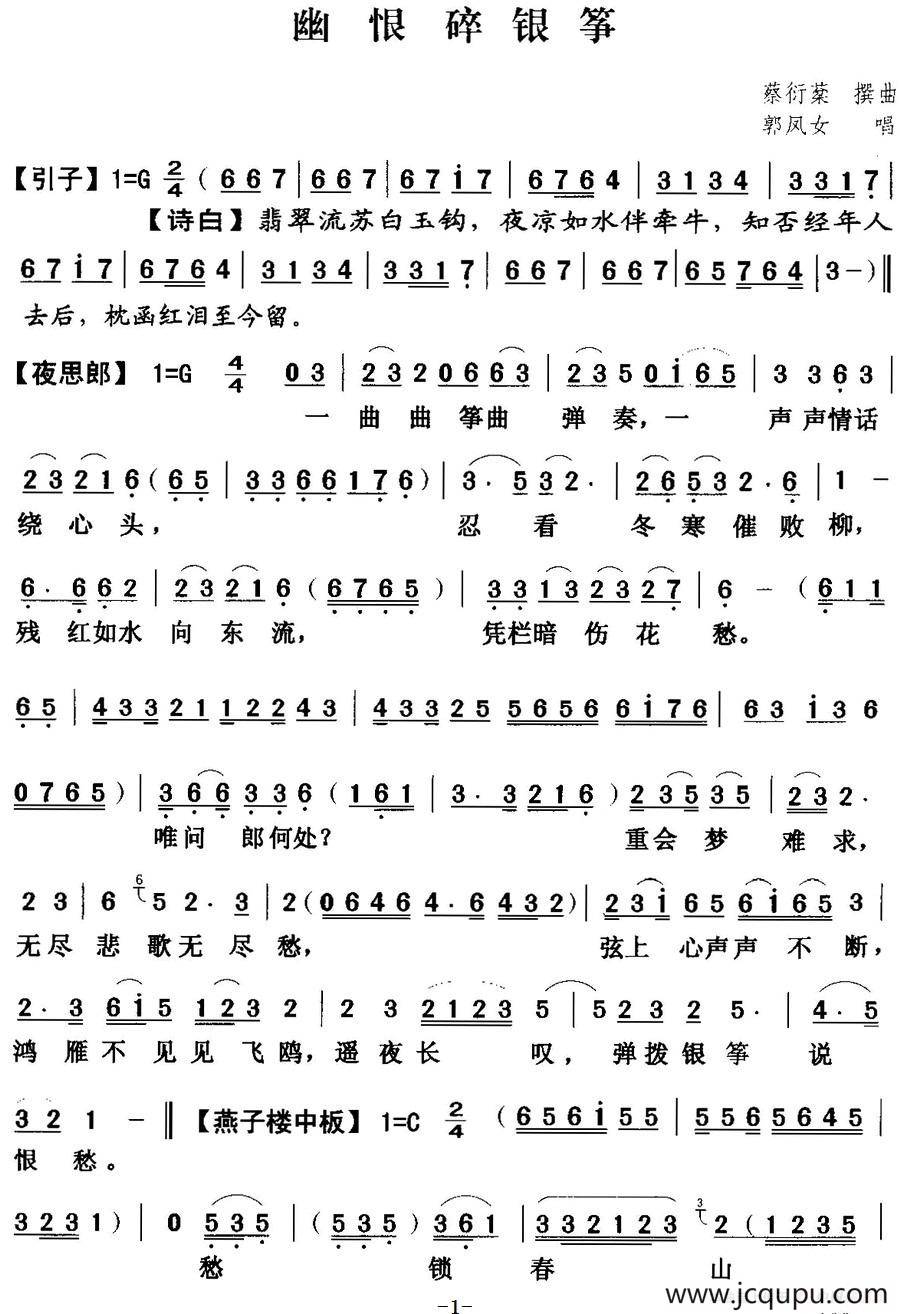 幽恨碎银筝
蔡衍棻 撰曲
郭凤女 唱
【引子】1=G 2/4 (667|667|67i7|6764|3134|3317|
【诗白】翡翠流苏白玉钩，夜凉如水伴牵牛，知否经年人
67i7|6764|3134|3317|667|667|65764|3-)||
去后，枕函红泪至今留。
【夜思郎】 1=G 4/4 03|2320663|2350i65|3 3 6 3|
一 曲 曲 筝曲 弹 奏，一 声 声情话
23216(65|3366176)|3·532·|26532·6|1 -
绕 心 头， 忍 看 冬 寒 催 败 柳，
6·662|23216(6765)|33132327|6 - (611
残 红如水 向 东 流， 凭栏暗 伤 花 愁。
65|4332112243|43325 5656 6i76|63 i36
0765)|366336(161|3·3216)2335|232·
唯问 郎何处？ 重会 梦 难 求，
23|6 6 52·3|2(06464·6432)|23i656i653|
无尽 悲 歌无 尽 愁， 弦上 心声声 不 断，
2·36i51232|2 3 21235|52325·|4·5
鸿 雁 不 见 见 飞 鸥，遥 夜 长 叹，弹拨 银 筝 说
321 -||【燕子楼中板】1=C 2/4 (656i55|5565645|
恨 愁。
3231)|0 535|(535)361|332123|3 2(1235|
愁 锁 春 山
-1-
www.jcqupu.com